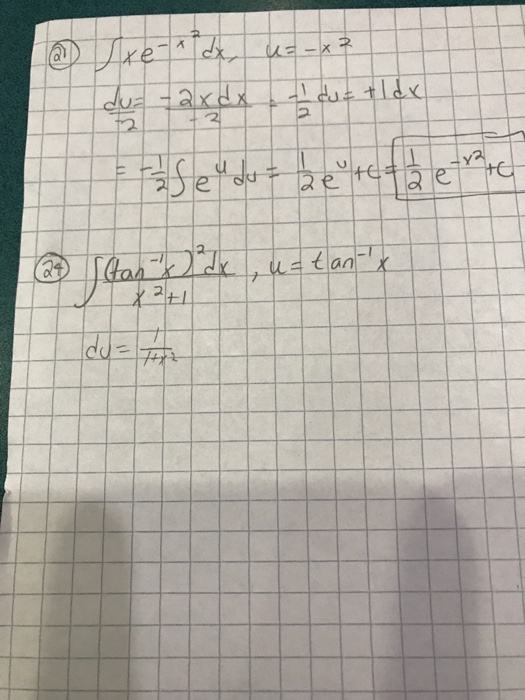 21 ∫xe^{-x^2} dx, u = -x^2
du/-2 = -2xdx/-2 = -1/2 du = +1dx
= -1/2 ∫e^u du = 1/2 e^u + C = 1/2 e^{-x^2} + C
24 ∫(tan^{-1}x)^2 dx / x^2+1 , u = tan^{-1}x
du = 1/1+x^2